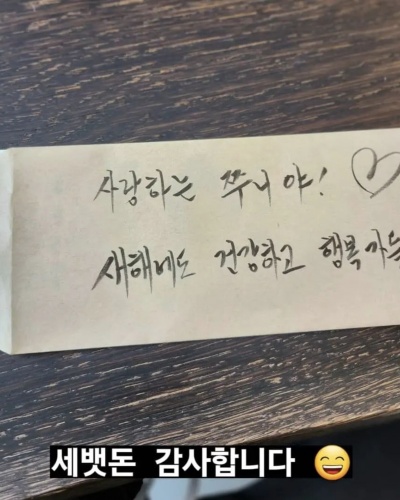 사랑하는 쭈니야! ♡
새해에도 건강하고 행복가득
세뱃돈 감사합니다 😄